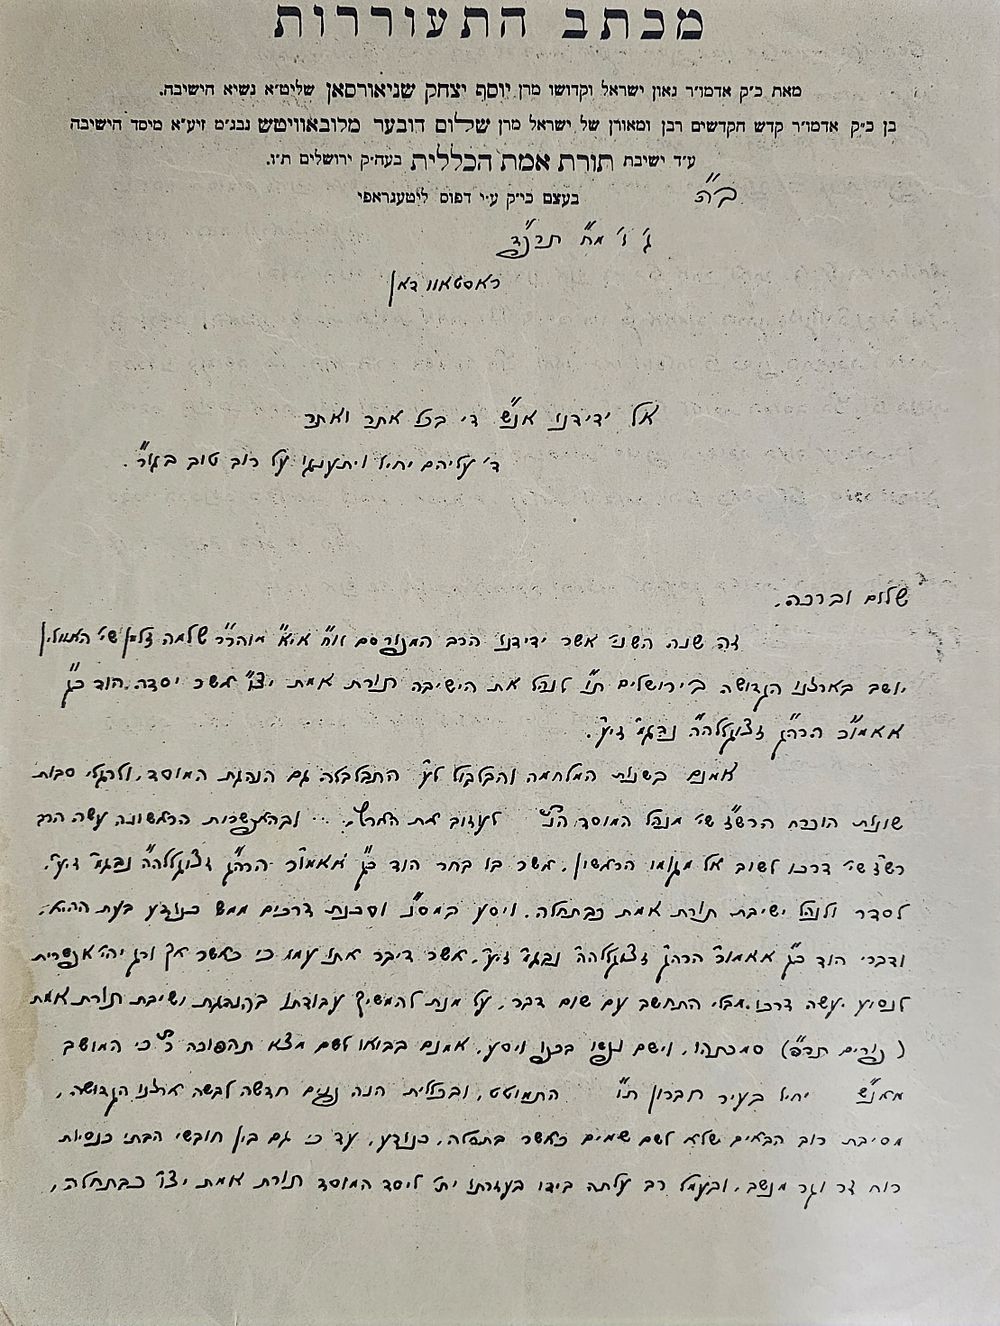 מכתב התעוררות
מאת כ״ק אדמו״ר גאון ישראל וקדושו מרן יוסף יצחק שניאורסאן שליט״א נשיא הישיבה.
בן כ״ק אדמו״ר קדש הקדשים רבן ומאורן של ישראל מרן שלום דובער מלובאוויטש נבג״מ זיע״א מיסד הישיבה
ע״ד ישיבת תורת אמת הכללית בעה״ק ירושלים ת״ו.
בעצם כי״ק ע״י דפוס ליטעגראפי
ב״ה
ג׳ ו׳ מ״ח תרפ״ד
ראסטאוו דאן
אל ידידנו אנ״ש די בכל אתר ואתר
ד׳ עליהם יחיו ויתענגו על רוב טוב בגו״ר.
שלום וברכה.
זה שנה השני׳ אשר ידידנו הרב המפורסם וו״ח אי״א מוהר״ר שלמה זלמן שי׳ האוולין
יושב בארצנו הקדושה בירושלים ת״ו לנהל את הישיבה תורת אמת יצ״ו אשר יסדה הוד כ״ק
אאמו״ר הרה״ק זצוקללה״ה נבגמ״ זיע״.
אמנם בשנות המלחמה והבלבול לע״ התבלבלה גם הנהגת המוסד, ולרגלי סבות
שונות הוכרח הרש״ז שי׳ מנהל המוסד הנ״ל לעזוב את הארץ, ובהאפשרית הראשונה עשה הרב
רש״ז שי׳ דרכו לשוב אל מקומו הראשון, אשר בו בחר הוד כ״ק אאמו״ר הרה״ק זצוקללה״ה נבגמ״ זיע״,
לסדר ולנהל ישיבת תורת אמת כבתחלה. ויסע במס״נ וסכנת דרכים ממש כנודע בעת ההיא,
ודברי הוד כ״ק אאמו״ר הרה״ק זצוקללה״ה נבגמ״ זיע״, אשר דיבר אתו עמו כי כאשר אך ורק יהי׳ אפשרית
לנסיע יעשה דרכו מבלי התחשב עם שום דבר, על מנת להמשיך עבודתו בהנהגת ישיבת תורת אמת
(פורים תר״פ) סמכתהו, וישם נפשו בכפו ויסע. אמנם בבואו לשם מצא תהפוכה ר״ל כי המושב
מאנ״ש יחיו בעיר חברון ת״ו התמוטט, ובכללית הנה פנים חדשה לבשה ארצנו הקדושה,
מסיבת רוב הבאים שלא לשם שמים כאשר בתחלה, כנודע, עד כי גם בין חובשי הבתי כנסיות
רוח זר וקר מנשב, ובעמל רב עלתה בידו בעזרתו ית׳ ליסד המוסד תורת אמת יצ״ו כבתחלה,